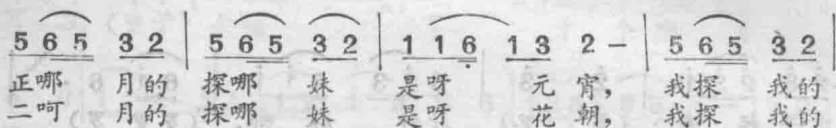 5 6 5 3 2 | 5 6 5 3 2 | 1 1 6 1 3 2 – | 5 6 5 3 2 |
正哪 月的 探哪 妹 是呀 元 宵, 我探 我的
二呵 月的 探哪 妹 是呀 花 朝, 我探 我的